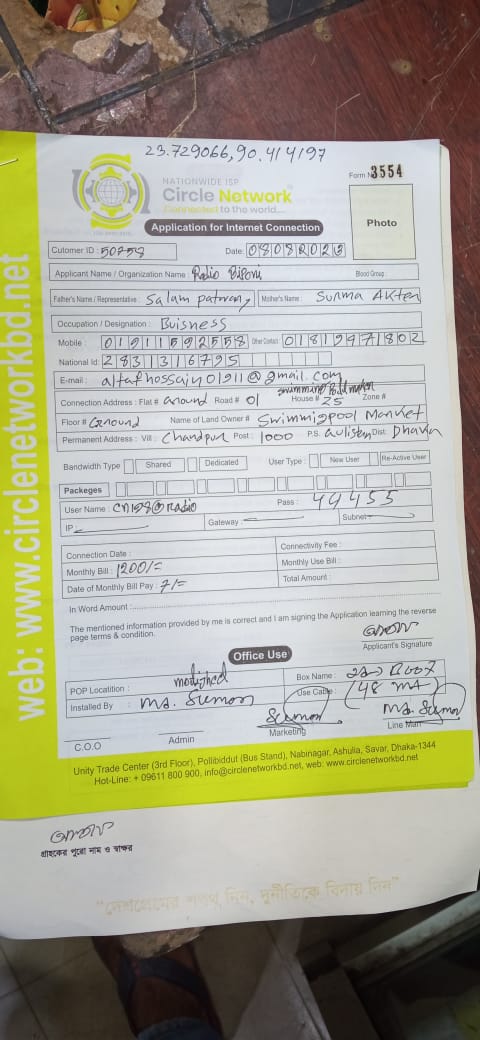 23.729066, 90.414197
NATIONWIDE ISP
Circle Network
Connected to the world....
Form № 3554
Application for Internet Connection
Photo
Cutomer ID : 50758
Date: 08082023
Applicant Name / Organization Name : Radio Bifoni
Blood Group :
Father's Name / Representative : Salam patwary Mother's Name : Surma AKter
Occupation / Designation : Buisness
Mobile : 01911592558 Other Contact : 01819971802
National Id: 2831316795
E-mail : altafhossain01911@gmail.com
Connection Address : Flat # Ground Road # 01 House # 25 Zone #
Floor # Ground Name of Land Owner # Swimmigpool Market
Permanent Address : Vill : Chandpur Post : 1000 P.S. Gulisten Dist: Dhaka
Bandwidth Type Shared Dedicated User Type : New User Re-Active User
Packeges
User Name : Cn198@Radio Pass : 44455
IP Gateway : Subnet
Connection Date : Connectivity Fee :
Monthly Bill : 1200/= Monthly Use Bill :
Date of Monthly Bill Pay : 7/= Total Amount :
In Word Amount :
The mentioned information provided by me is correct and I am signing the Application learning the reverse
page terms & condition.
Applicant's Signature
Office Use
POP Locatition : motijheel Box Name :
Installed By : Md. Sumon Use Cable : (48 MA)
Sumon Md. Sumon
C.O.O Admin Marketing Line Man
Unity Trade Center (3rd Floor), Pollibiddut (Bus Stand), Nabinagar, Ashulia, Savar, Dhaka-1344
Hot-Line: + 09611 800 900, info@circlenetworkbd.net, web: www.circlenetworkbd.net
web: www.circlenetworkbd.net
গ্রাহকের পুরো নাম ও স্বাক্ষর
“দেশপ্রেমের শপথ নিন, দুর্নীতিকে বিদায় দিন”